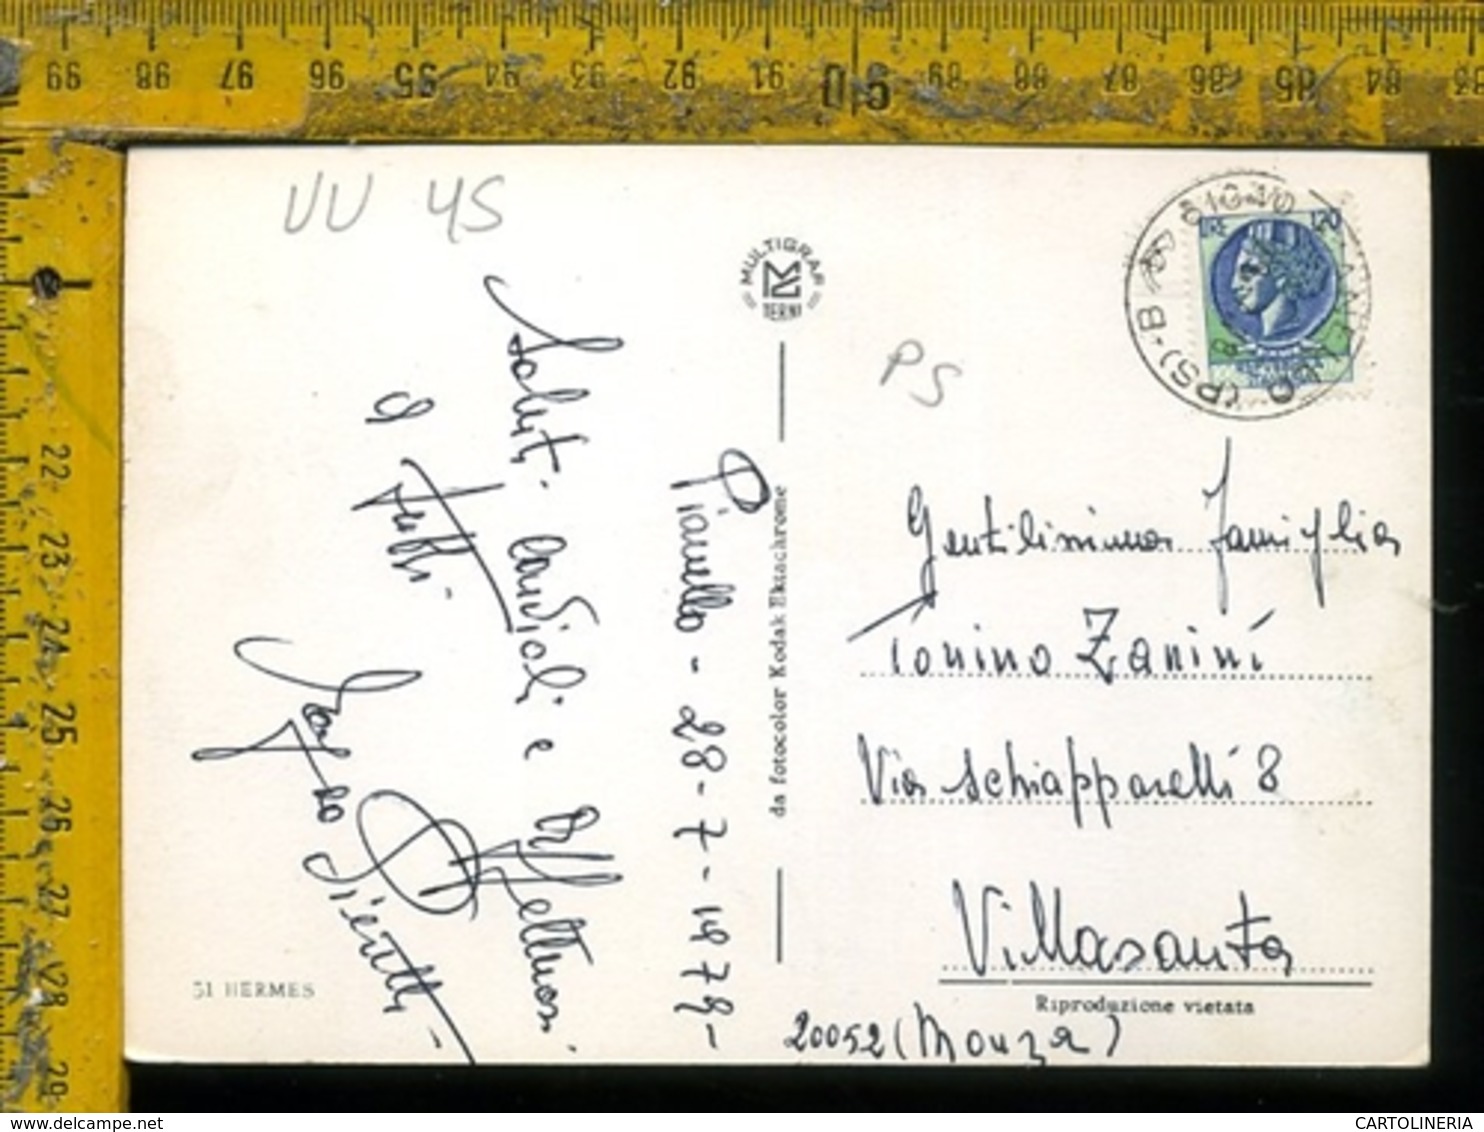 99 98 97 96 95 94 93 92 91 90 89 88 87 86 85 84 83
22 23 24 25 26 27 28 29
VV 45
MULTIGRAF
TERNI
LIRE 120
(PS)-B
PS
Saluti cordiali e affettuosi
a tutti.
Pianello - 28-7-1978-
da fotocolor Kodak Ektachrome
Gentilissima famiglia
Tonino Zanini
Via Schiapparelli 8
Villasanta
20052 (Monza)
Riproduzione vietata
51 HERMES
CARTOLINERIA